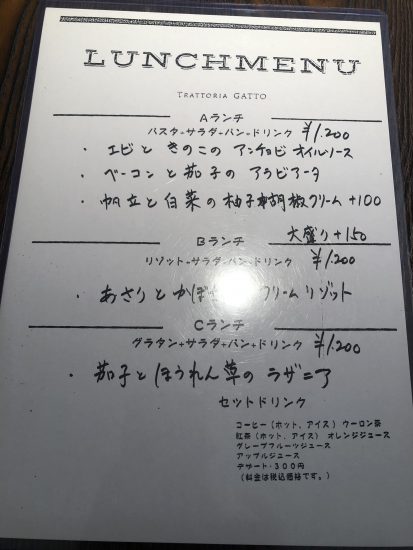 LUNCHMENU
TRATTORIA GATTO
Aランチ
パスタ+サラダ+パン+ドリンク ¥1,200
・エビときのこのアンチョビオイルソース
・ベーコンと茄子のアラビアータ
・帆立と白菜の柚子胡椒クリーム +100
大盛り+150
Bランチ
リゾット+サラダ+パン+ドリンク ¥1,200
・あさりとかぼ クリームリゾット
Cランチ
グラタン+サラダ+パン+ドリンク ¥1,200
・茄子とほうれん草のラザニア
セットドリンク
コーヒー(ホット、アイス) ウーロン茶
紅茶(ホット、アイス) オレンジジュース
グレープフルーツジュース
アップルジュース
デザート・300円
(料金は税込価格です。)